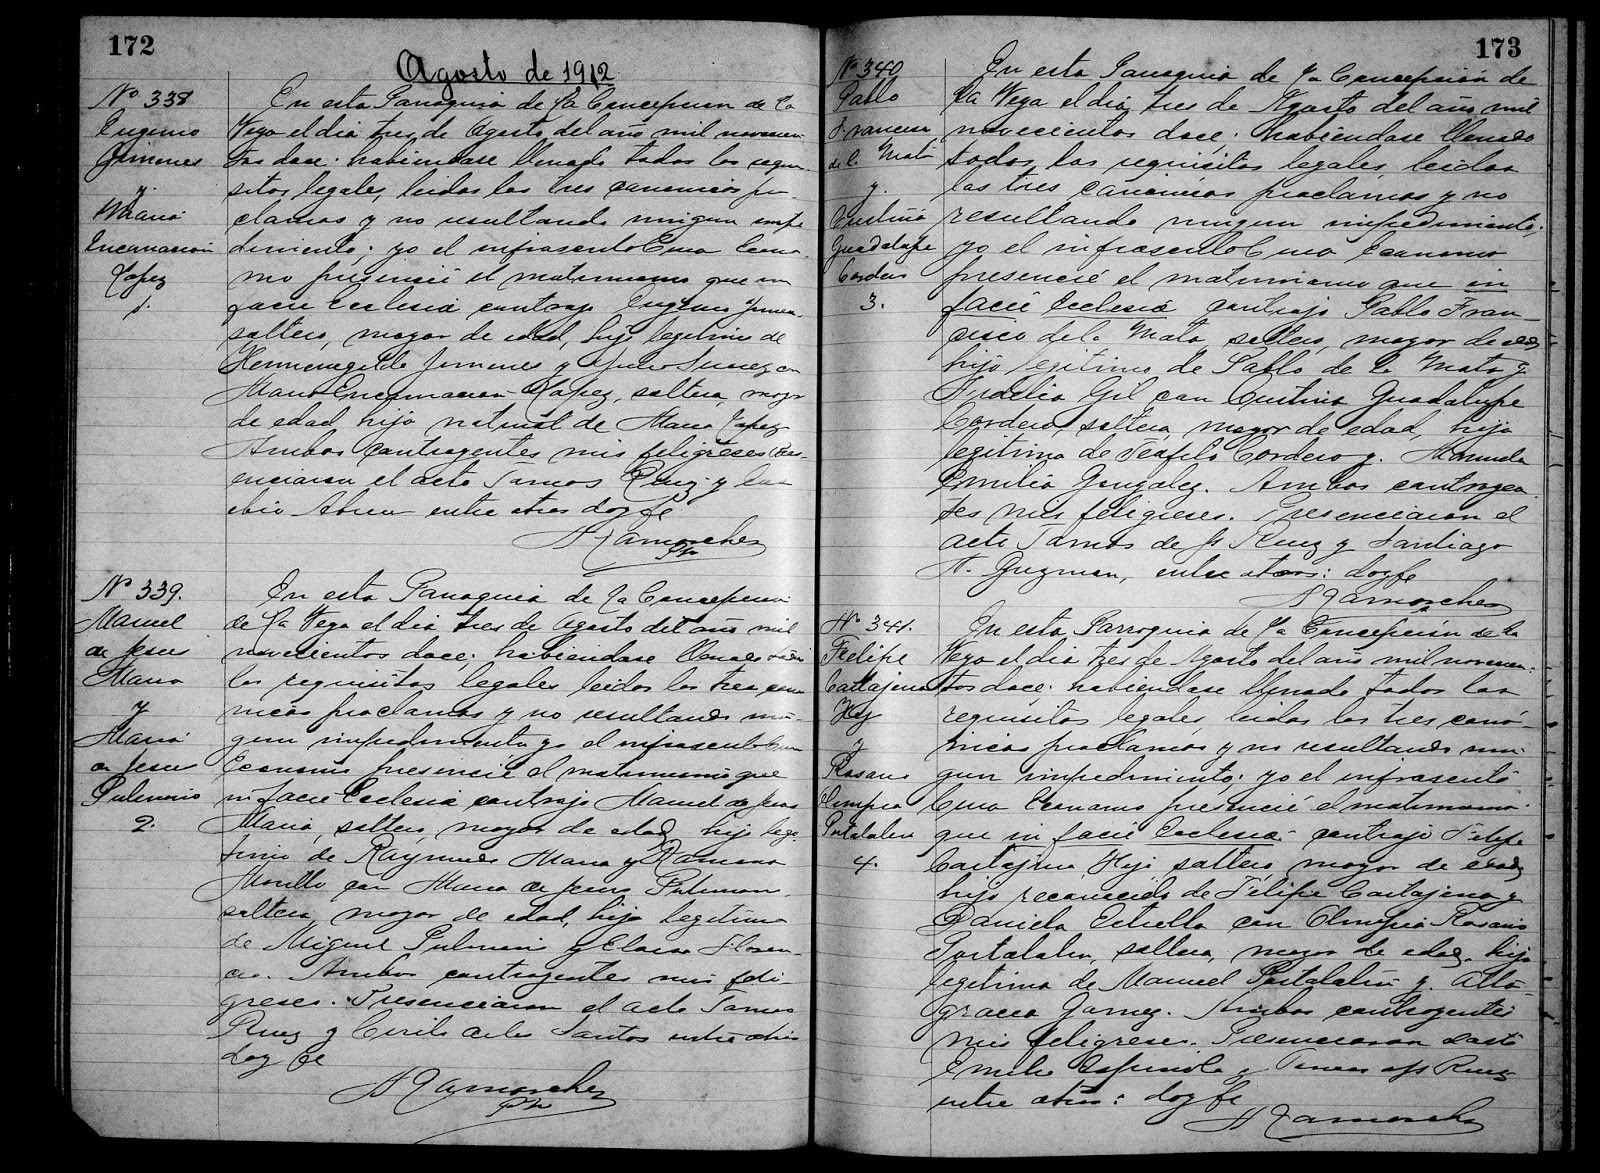 172
Agosto de 1912
Nº 338
Eugenio
Jimenes
y
Maria
Encarnación
Lopez
1.
En esta Parroquia de la Concepcion de la
Vega el dia tres de Agosto del año mil novecien
tos doce: habiendose llenado todos los requi-
sitos legales, leidas las tres canonicas pro
clamas y no resultando ningun impe
dimento; yo el infrascrito Cura Econo-
mo presencié el matrimonio que in
facie Eclesia contrajo Eugenio Jimenes
soltero, mayor de edad, hijo legitimo de
Hermenegildo Jimenes y Suarez con
Maria Encarnacion Lopez, soltera, mayor
de edad, hija natural de Maria Lopez
Ambos contrayentes mis feligreses Pres-
enciaron el acto Tomas Ruiz y Eu
Abreu entre otros doy fe
A Lamarche
Pbro
Nº 339.
Manuel
de Jesus
Maria
y
Maria
de Jesus
Pulinario
2.
En esta Parroquia de la Concepcion
de la Vega el dia tres de Agosto del año mil
novecientos doce; habiendose llenado todos
los requisitos legales leidas las tres cano
nicas proclamas y no resultando nin-
gun impedimento yo el infrascrito Cura
Economo presencié el matrimonio que
in facie Eclesia contrajo Manuel de Jesus
Maria, soltero, mayor de edad, hijo legi
timo de Raymundo Maria y Ramona
Morillo con Maria de Jesus Pulinario
soltera, mayor de edad, hija legitima
de Miguel Pulinario y Eloisa Floren-
cio. Ambos contrayentes mis feli-
greses. Presenciaron el acto Tomas
Ruiz y Cirilo de los Santos entre otros
doy fe
A Lamarche
Pbro
173
Nº 340
Pablo
Francisco
de la Mata
y.
Cristina
Guadalupe
Cordero
3.
En esta Parroquia de la Concepción de
la Vega el dia tres de Agosto del año mil
novecientos doce: habiendose llenado
todos los requisitos legales, leidas
las tres canónicas proclamas y no
resultando ningun impedimento;
yo el infrascrito Cura Economo
presencié el matrimonio que in
facie Eclesia contrajo Pablo Fran-
cisco de la Mata, soltero, mayor de edad
hijo legitimo de Pablo de la Mata y
Fidelia Gil con Cristina Guadalupe
Cordero, soltera, mayor de edad, hija
legitima de Teófilo Cordero y. Manuela
Emilia Gonzalez. Ambos contrayen
tes mis feligreses. Presenciaron el
acto Tomas de Js Ruiz y Santiago
N. Guzman, entre otros: doy fe
A Lamarche
Nº 341.
Felipe
Cartajena
Hej
y
Rosario
Olimpia
Portalatin
4.
En esta Parroquia de la Concepción de la
Vega el dia tres de Agosto del año mil novecien
tos doce: habiendose llenado todos los
requisitos legales, leidas las tres canó-
nicas proclamas y no resultando nin-
gun impedimento; yo el infrascrito
Cura Economo presencié el matrimonio
que in facie Eclesia contrajo Felipe
Cartajena Hej soltero, mayor de edad,
hijo reconocido de Felipe Cartajena y
Daniela Estrella con Olimpia Rosario
Portalatin, soltera, mayor de edad, hija
legitima de Manuel Portalatin y. Alta-
gracia Gomez. Ambos contrayentes
mis feligreses. Presenciaron el acto
Emilio Espinola y Tomas de Js Ruiz
entre otros: doy fe
A Lamarche